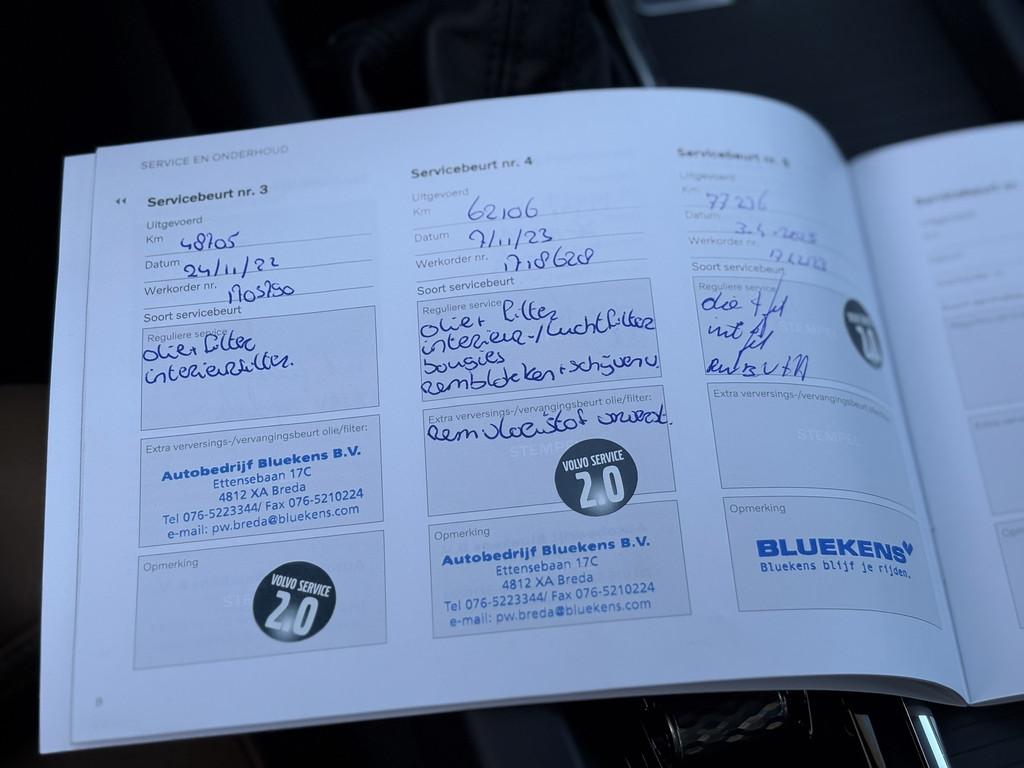 SERVICE EN ONDERHOUD
Servicebeurt nr. 3
Uitgevoerd
Km 48705
Datum 24/11/22
Werkorder nr. 1705750
Soort servicebeurt
Reguliere service
olie + filter
interieurfilter.
Extra verversings-/vervangingsbeurt olie/filter:
Autobedrijf Bluekens B.V.
Ettensebaan 17C
4812 XA Breda
Tel 076-5223344/ Fax 076-5210224
e-mail: pw.breda@bluekens.com
Opmerking
VOLVO SERVICE
2.0
8
Servicebeurt nr. 4
Uitgevoerd
Km 62106
Datum 9/11/23
Werkorder nr. 1718628
Soort servicebeurt
Reguliere service
olie + filter
interieur-/luchtfilter
bougies
remblokken + schijven v.
Extra verversings-/vervangingsbeurt olie/filter:
Remvloeistof ververst.
STEMPEL
VOLVO SERVICE
2.0
Opmerking
Autobedrijf Bluekens B.V.
Ettensebaan 17C
4812 XA Breda
Tel 076-5223344/ Fax 076-5210224
e-mail: pw.breda@bluekens.com
Servicebeurt nr. 5
Uitgevoerd
Km 77236
Datum 3-4-2025
Werkorder nr.
Soort servicebeurt
Reguliere service
olie + fil
int fil
STEMPEL
2.0
Extra verversings-/vervangingsbeurt olie/filter:
STEMPEL
Opmerking
BLUEKENS
Bluekens blijf je rijden.